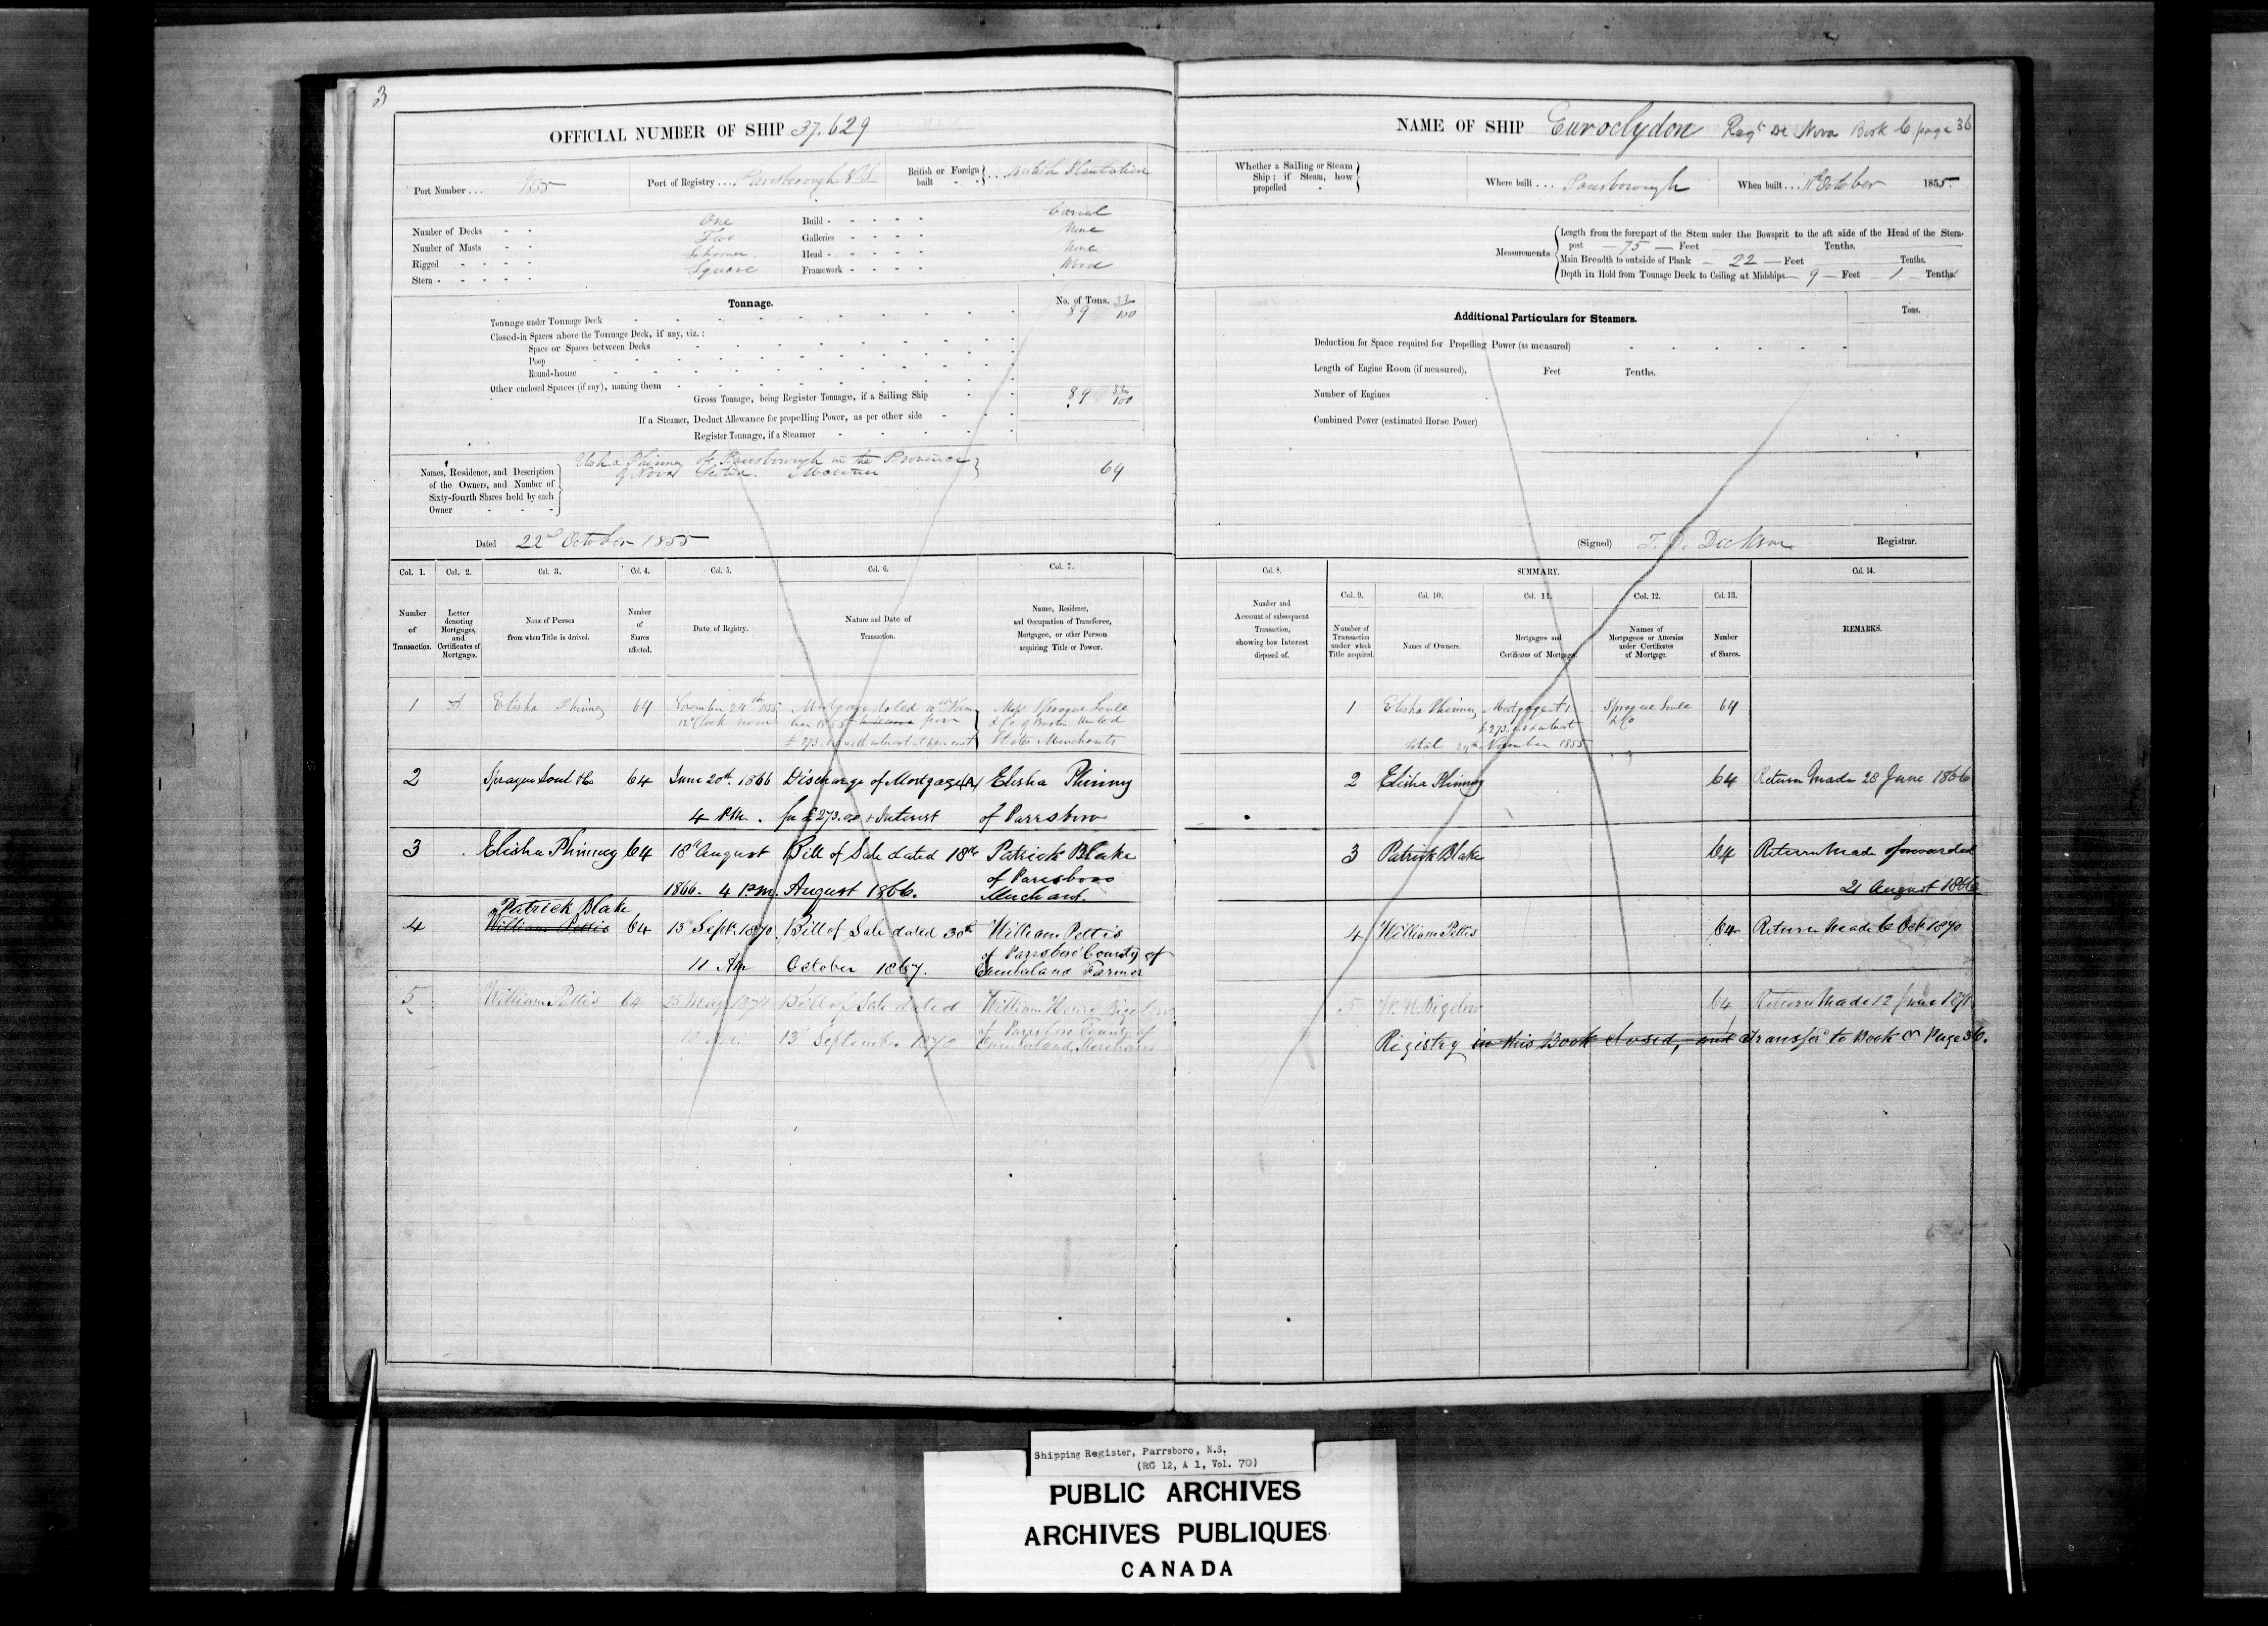 3
OFFICIAL NUMBER OF SHIP 37.629
Port Number ... 1855
Port of Registry ... Parrsborough N.S.
British or Foreign built ... British Plantation
Number of Decks - - One
Number of Masts - - Two
Rigged - - - - Schooner
Stern - - - - - Square
Build - - - - - Carvel
Galleries - - - - None
Head - - - - - None
Framework - - - - Wood
Tonnage.
No. of Tons.
Tonnage under Tonnage Deck 89 32/100
Closed-in Spaces above the Tonnage Deck, if any, viz.:
Space or Spaces between Decks
Poop
Round-house
Other enclosed Spaces (if any), naming them
Gross Tonnage, being Register Tonnage, if a Sailing Ship 89 32/100
If a Steamer, Deduct Allowance for propelling Power, as per other side
Register Tonnage, if a Steamer
Names, Residence, and Description of the Owners, and Number of Sixty-fourth Shares held by each Owner
Elisha Phinney of Parrsborough in the Province
of Nova Scotia. Mariner
64
Dated 22nd October 1855
Col. 1. Col. 2. Col. 3. Col. 4. Col. 5. Col. 6. Col. 7.
Number of Transaction.
Letter denoting Mortgages, and Certificates of Mortgages.
Name of Person from whom Title is derived.
Number of Shares affected.
Date of Registry.
Nature and Date of Transaction.
Name, Residence, and Occupation of Transferee, Mortgagee, or other Person acquiring Title or Power.
1 A Elisha Phinney 64 November 24th 1855 Mortgage dated Messrs Sprague Soule
12 oClock noon & Co of Boston United
£273 with interest States Merchants
2 Sprague Soul & Co 64 June 20th 1866 Discharge of Mortgage (A) Elisha Phinney
4 P.M. for £273.00 & Interest of Parrsboro
3 Elisha Phinney 64 18th August Bill of Sale dated 18th Patrick Blake
1866. 4 P.M. August 1866. of Parrsboro
Merchant.
Patrick Blake
4 William Pettis 64 15 Sept. 1870 Bill of Sale dated 30th William Pettis
11 AM October 1867. of Parrsboro County of
Cumberland Farmer
5 William Pettis 64 25 May 1871 Bill of Sale dated William Henry Bigelow
10 a.m. 13th September 1870 of Parrsboro County of
Cumberland, Merchant
NAME OF SHIP Euroclydon Regd De Nova Book C page 36
Whether a Sailing or Steam Ship; if Steam, how propelled
Where built ... Parrsborough
When built ... 11th October 1855.
Measurements
Length from the forepart of the Stem under the Bowsprit to the aft side of the Head of the Stern-
post — 75 — Feet Tenths.
Main Breadth to outside of Plank — 22 — Feet Tenths.
Depth in Hold from Tonnage Deck to Ceiling at Midships — 9 — Feet — 1 — Tenths
Additional Particulars for Steamers.
Tons.
Deduction for Space required for Propelling Power (as measured)
Length of Engine Room (if measured), Feet Tenths.
Number of Engines
Combined Power (estimated Horse Power)
(Signed) T. D. Dickson Registrar.
Col. 8. SUMMARY. Col. 14.
Col. 9. Col. 10. Col. 11. Col. 12. Col. 13.
Number and Account of subsequent Transaction, showing how Interest disposed of.
Number of Transaction under which Title acquired.
Names of Owners.
Mortgages and Certificates of Mortgage.
Names of Mortgagees or Attornies under Certificates of Mortgage.
Number of Shares.
REMARKS.
1 Elisha Phinney Mortgage A Sprague Soule 64
£273 & interest & Co
24th November 1855
2 Elisha Phinney 64 Return Made 28 June 1866
3 Patrick Blake 64 Return Made & forwarded
21 August 1866
4 William Pettis 64 Return Made 6 Oct 1870
5 W. H. Bigelow 64 Return Made 12 June 1871
Registry in this Book closed, and transfd to Book C Page 36.
Shipping Register, Parrsboro, N.S.
(RG 12, A 1, Vol. 70)
PUBLIC ARCHIVES
ARCHIVES PUBLIQUES
CANADA